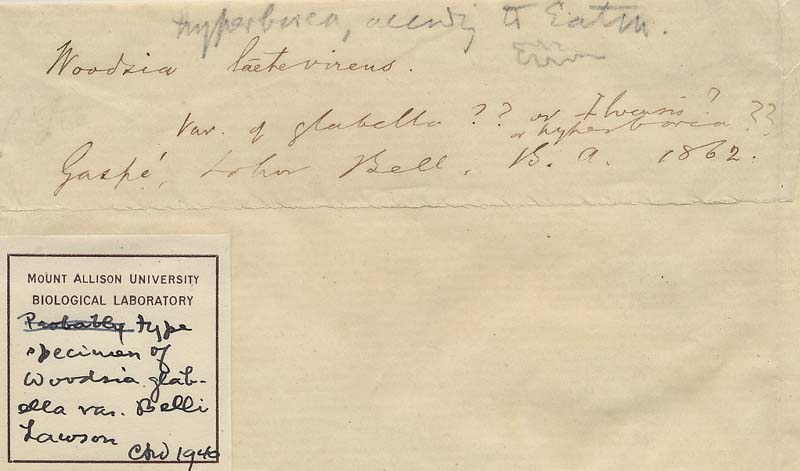 hyperborea, accordg to Eaton.
Woodsia laetevirens.
Var. of glabella ?? or Ilvensis ?
or hyperborea ??
Gaspé, John Bell, B. A. 1862.
MOUNT ALLISON UNIVERSITY
BIOLOGICAL LABORATORY
Probably type
specimen of
Woodsia glab-
ella var. Belli
Lawson
1940